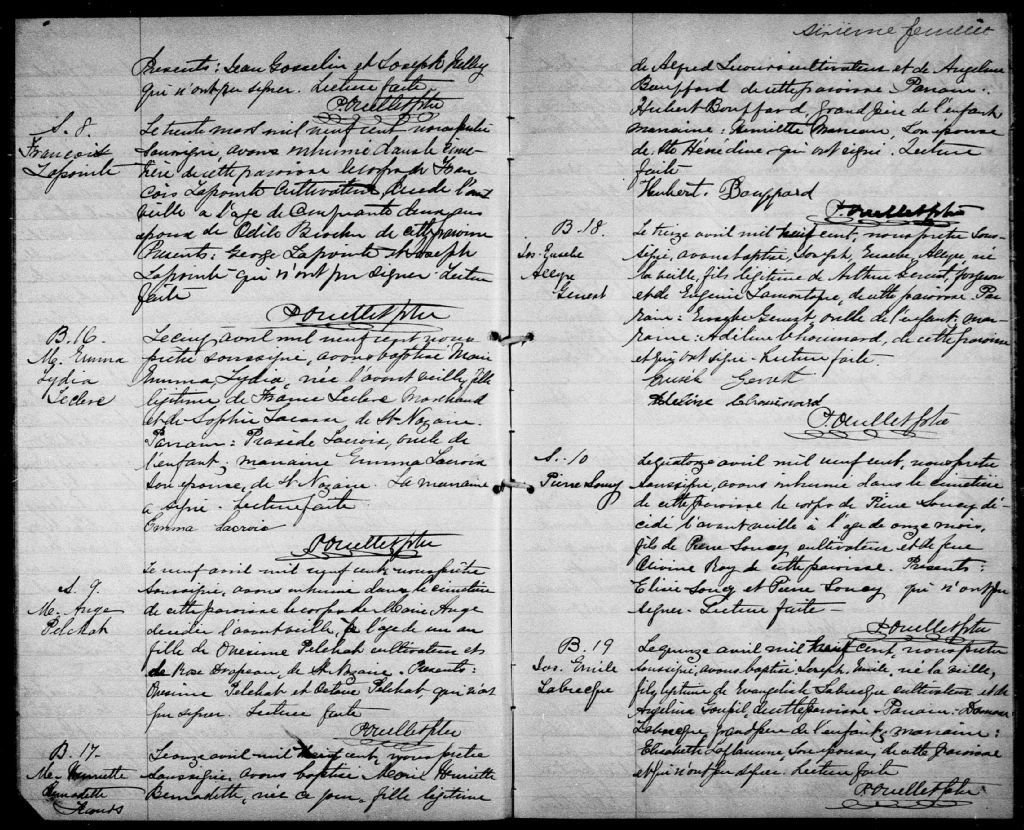 Presents: Jean Gosselin et Joseph
qui n'ont pu signer. Lecture faite
P. Ouellet Ptre
S. 8.
François
Lapointe
Le trente mars mil neuf cent, nous prêtre
soussigné, avons inhumé dans le cime-
tière de cette paroisse le corps de Fran
çois Lapointe cultivateur décédé l'avant
veille a l'age de cinquante deux ans
epoux de Odile de cette paroisse
Presents: George Lapointe et Joseph
Lapointe qui n'ont pu signer Lecture
faite
P. Ouellet Ptre
B. 16.
M. Emma
Lydia
Leclerc
Le cinq avril mil neuf cent nous
prêtre soussigné, avons baptisé Marie
Emma, Lydia, née l'avant veille, fille
légitime de Leclerc Marchand
et de Sophie de St-Nazaire.
Parrain: Praxède Lacroix, oncle de
l'enfant; marraine Emma Lacroix
son epouse, de St-Nazaire. La marraine
a signé. Lecture faite
Emma Lacroix
P. Ouellet Ptre
S. 9.
M. Ange
Pelchat
Le neuf avril mil neuf cent, nous prêtre
soussigné, avons inhumé dans le cimetière
de cette paroisse le corps de Marie Ange
décédée l'avant veille, à l'age de un an
fille de Onesime Pelchat cultivateur et
de Rose Drapeau, de St-Nazaire. Presents:
Onesime Pelchat et Octave Pelchat qui n'ont
pu signer. Lecture faite
P. Ouellet Ptre
B. 17.
M. Henriette
Bernadette
Le onze avril mil neuf cent, nous prêtre
soussigné, avons baptisé Marie Henriette
Bernadette, née ce jour, fille légitime
sixième feuillet
de Alfred cultivateur et de Angelina
Bouffard de cette paroisse - Parrain:
Hubert Bouffard, grand père de l'enfant
marraine: Henriette Marceau, son épouse
de Ste Hénédine qui ont signé. Lecture
faite
Hubert. Bouffard
P. Ouellet Ptre
B. 18.
Jos. Eusebe
Allyre
Genest
Le treize avril mil neuf cent, nous prêtre sous-
signé, avons baptisé, Joseph, Eusebe, Allyre, né
la veille, fils légitime de Arthur Genest forgeron
et de Eugenie Lamontagne, de cette paroisse Par-
rain: Eusebe Genest oncle de l'enfant, mar-
raine: Adeline Chouinard, de cette paroisse
et qui ont signé - Lecture faite.
Eusèb Genest
Adeline Chouinard
P. Ouellet Ptre
S. 10
Pierre Soucy
Le quatorze avril mil neuf cent, nous prêtre
soussigné, avons inhumé dans le cimetière
de cette paroisse le corps de Pierre Soucy dé-
cédé l'avant veille à l'age de onze mois,
fils de Pierre Soucy cultivateur et de feue
Olivine Roy de cette paroisse. Présents:
Elisé Soucy et Pierre Soucy qui n'ont pu
signer - Lecture faite -
P. Ouellet Ptre
B. 19
Jos. Emile
Labrecque
Le quinze avril mil neuf cent, nous prêtre
soussigné, avons baptisé Joseph Emile, né la veille,
fils légitime de Evangeliste Labrecque cultivateur et de
Angelina Goupil, de cette paroisse - Parrain: Damase
Labrecque, grand père de l'enfant, marraine:
Elisabeth Laflamme, son epouse, de cette paroisse
et qui n'ont pu signer. Lecture faite
P. Ouellet Ptre